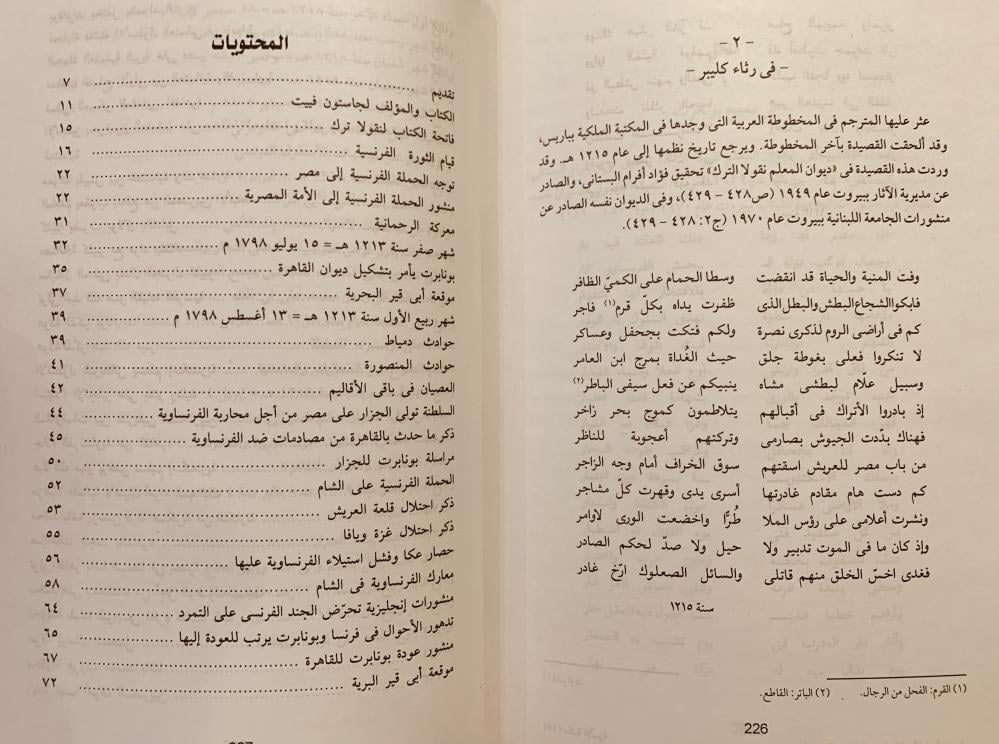 – ٢ –
– فى رثاء كليبر –
عثر عليها المترجم فى المخطوطة العربية التى وجدها فى المكتبة الملكية بباريس،
وقد ألحقت القصيدة بآخر المخطوطة. ويرجع تاريخ نظمها إلى عام ١٢١٥ هـ. وقد
وردت هذه القصيدة فى «ديوان المعلم نقولا الترك» تحقيق فؤاد أفرام البستانى، والصادر
عن مديرية الآثار ببيروت عام ١٩٤٩ (ص٤٢٨ – ٤٢٩)، وفى الديوان نفسه الصادر عن
منشورات الجامعة اللبنانية ببيروت عام ١٩٧٠ (ج٢: ٤٢٨ – ٤٢٩).
وفت المنية والحياة قد انقضت وسطا الحمام على الكميّ الظافر
فابكوا الشجاع البطش والبطل الذى ظفرت يداه بكلّ قرم(١) فاجر
كم فى أراضى الروم لذكرى نصرة ولكم فتكت بجحفل وعساكر
لا تنكروا فعلى بغوطة جلق حيث الغُداة بمرج ابن العامر
وسبيل علّام لبطشى مشاه ينبيكم عن فعل سيفى الباطر(٢)
إذ بادروا الأتراك فى أقبالهم يتلاطمون كموج بحر زاخر
فهناك بدّدت الجيوش بصارمى وتركتهم أعجوبة للناظر
من باب مصر للعريش اسقتهم سوق الخراف أمام وجه الزاجر
كم دست هام مقادم غادرتها أسرى يدى وقهرت كلّ مشاجر
ونشرت أعلامى على رؤس الملا طُرًّا واخضعت الورى لاوامر
وإذ كان ما فى الموت تدبير ولا حيل ولا صدّ لحكم الصادر
فغدى اخسّ الخلق منهم قاتلى والسائل الصعلوك ارّخ غادر
سنة ١٢١٥
(١) القرم: الفحل من الرجال. (٢) الباتر: القاطع.
226
المحتويات
تقديم ٧
الكتاب والمؤلف لجاستون فييت ١١
فاتحة الكتاب لنقولا ترك ١٥
قيام الثورة الفرنسية ١٦
توجه الحملة الفرنسية إلى مصر ٢٢
منشور الحملة الفرنسية إلى الأمة المصرية ٢٢
معركة الرحمانية ٣١
شهر صفر سنة ١٢١٣ هـ = ١٥ يوليو ١٧٩٨ م ٣٢
بونابرت يأمر بتشكيل ديوان القاهرة ٣٥
موقعة أبى قير البحرية ٣٧
شهر ربيع الأول سنة ١٢١٣ هـ = ١٣ أغسطس ١٧٩٨ م ٣٩
حوادث دمياط ٣٩
حوادث المنصورة ٤١
العصيان فى باقى الأقاليم ٤٢
السلطنة تولى الجزار على مصر من أجل محاربة الفرنساوية ٤٤
ذكر ما حدث بالقاهرة من مصادمات ضد الفرنساوية ٤٥
مراسلة بونابرت للجزار ٥٠
الحملة الفرنسية على الشام ٥٢
ذكر احتلال قلعة العريش ٥٣
ذكر احتلال غزة ويافا ٥٥
حصار عكا وفشل استيلاء الفرنساوية عليها ٥٦
معارك الفرنساوية فى الشام ٥٨
منشورات إنجليزية تحرّض الجند الفرنسى على التمرد ٦٤
تدهور الأحوال فى فرنسا وبونابرت يرتب للعودة إليها ٦٥
منشور عودة بونابرت للقاهرة ٦٧
موقعة أبى قير البرية ٧٢